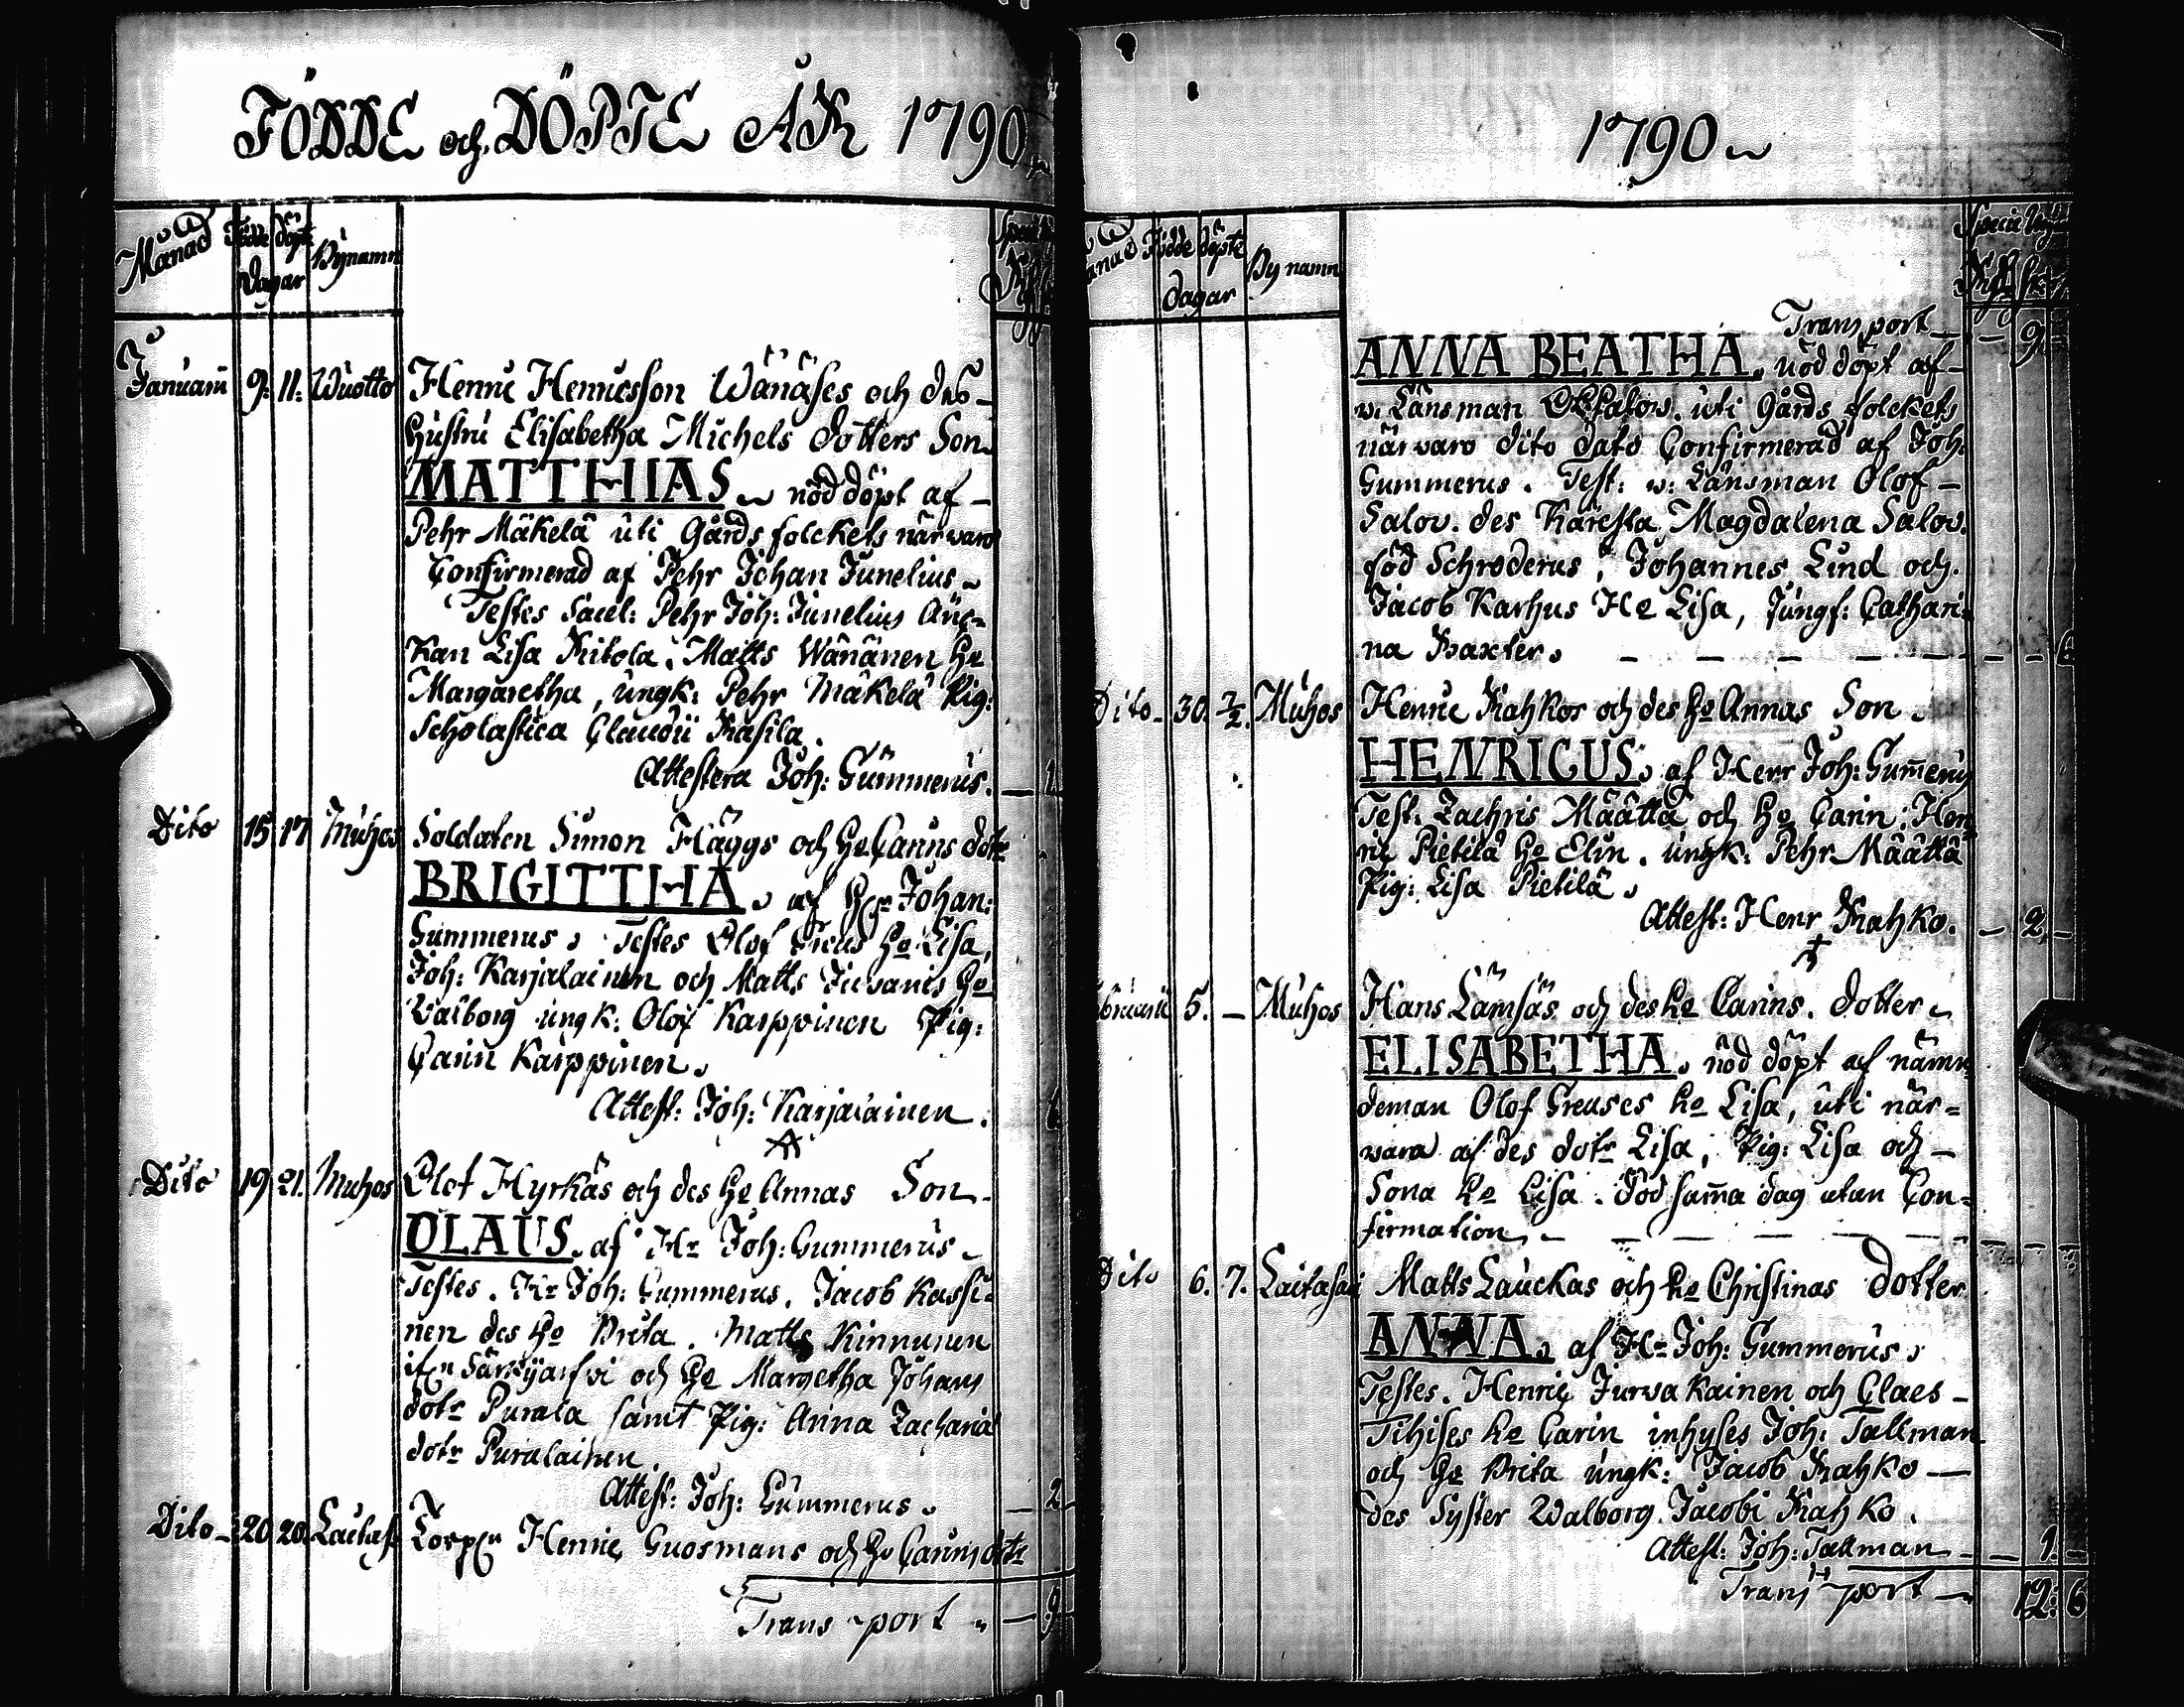 FÖDDE och DÖPTE ÅR 1790
Månad Födde döpte dagar Bynamn
Januarii 9. 11. Wuotto Henric Henricsson Wänäses och des
hustru Elisabetha Michels dotters Son
MATTHIAS nöd döpt af
Pehr Mäkelä uti Gårds folckets närwaro
Confirmerad af Pehr Johan Junelius
Testes Sacel: Pehr Joh: Junelius Änc-
kan Lisa Kitola. Matts Wänänen ho
Margaretha, ungk: Pehr Mäkelä Pig:
Scholastica Claudii Rasila.
Attestera Joh: Gummerus. 1
Dito 15 17 Muhos Soldaten Simon Häggs och ho Carins dotr
BRIGITTHA. af Johan:
Gummerus. Testes Olof ho Lisa,
Joh: Karjalainen och Matts ho
Walborg ungk: Olof Karppinen Pig:
Carin Karppinen.
Attest: Joh: Karjalainen.
Dito 19 21. Muhos Olof Hyrkäs och des ho Annas Son
OLAUS. af Hr Joh: Gummerus
Testes. Hr Joh: Gummerus. Jacob Kassi-
nen des ho Brita. Matts Kinnunen
och ho Margetha Johans
dotr Purala samt Pig: Anna Zachariæ
dotr Puralainen.
Attest: Joh: Gummerus. 2
Dito 20 20 Laitas Henric Guosmans och ho Carins dotr
Transport 9
1790
Månad Födde döpte dagar By namn
Transport 9
ANNA BEATHA. nöd döpt af
w. Länsman Ol. Salow. uti gårds folckets
närwaro dito dato Confirmerad af Joh.
Gummerus. Test: w: Länsman Olof
Salov. des Käresta Magdalena Salov.
föd Schroderus, Johannes Lind och.
Jacob Karhus Ho Lisa, Jungf: Cathari-
na Baxter. 6
Dito 30. 2/2. Muhos Henric Rahkos och des ho Annas Son
HENRICUS. af Herr Joh: Gummerus
Test: Zachris Määttä och ho Carin. Hen-
ric Pietilä ho Elin. ungk: Pehr Määttä
Pig: Lisa Pietilä.
Attest: Henr Rahko. 2
Februarii 5. Muhos Hans Lämsäs och des ho Carins. dotter
ELISABETHA. nöd döpt af nämn-
deman Olof Greuses ho Lisa, uti när-
wara af des dotr Lisa, Pig: Lisa och
Sona ho Lisa. Död samma dag utan Con-
firmation
Dito 6. 7. Laitasari Matts Lauckas och ho Christinas dotter
ANNA. af Hr Joh: Gummerus.
Testes. Henric Jurvakainen och Claes
Tihises ho Carin inhyses Joh: Tallman
och ho Brita ungk: Jacob Rahko
des Syster Walborg Jacobi Rahko.
Attest: Joh: Tallman 1.
Transport 12: 6